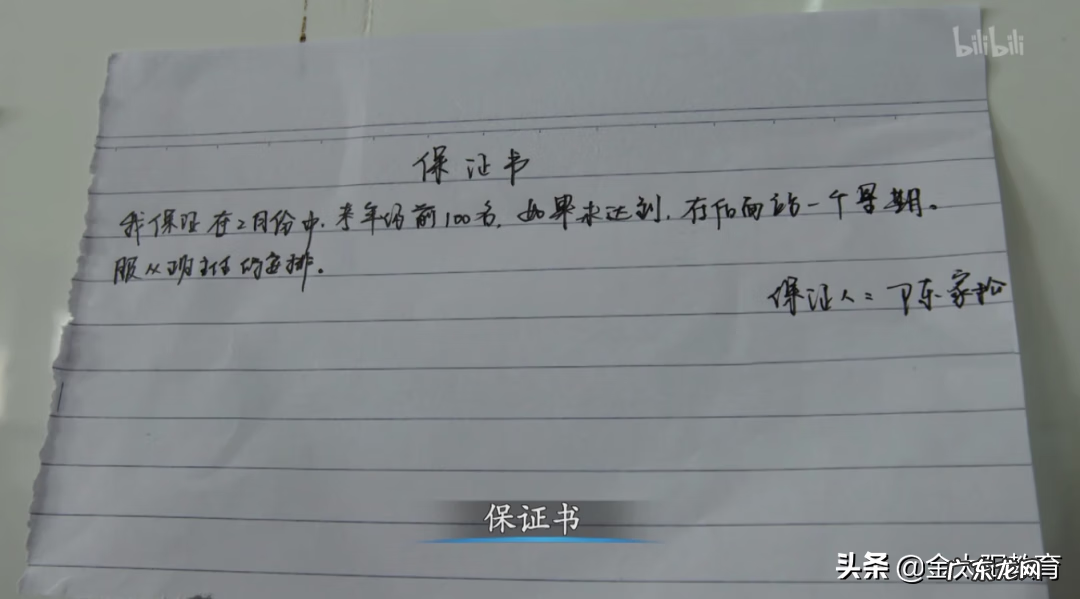 bilibili
保证书
我保证在2月份中.考年级前100名.如果未达到.在后面站一个星期。
服从班主任的安排.
保证人：陈家松
保证书
头条 @广东龙网